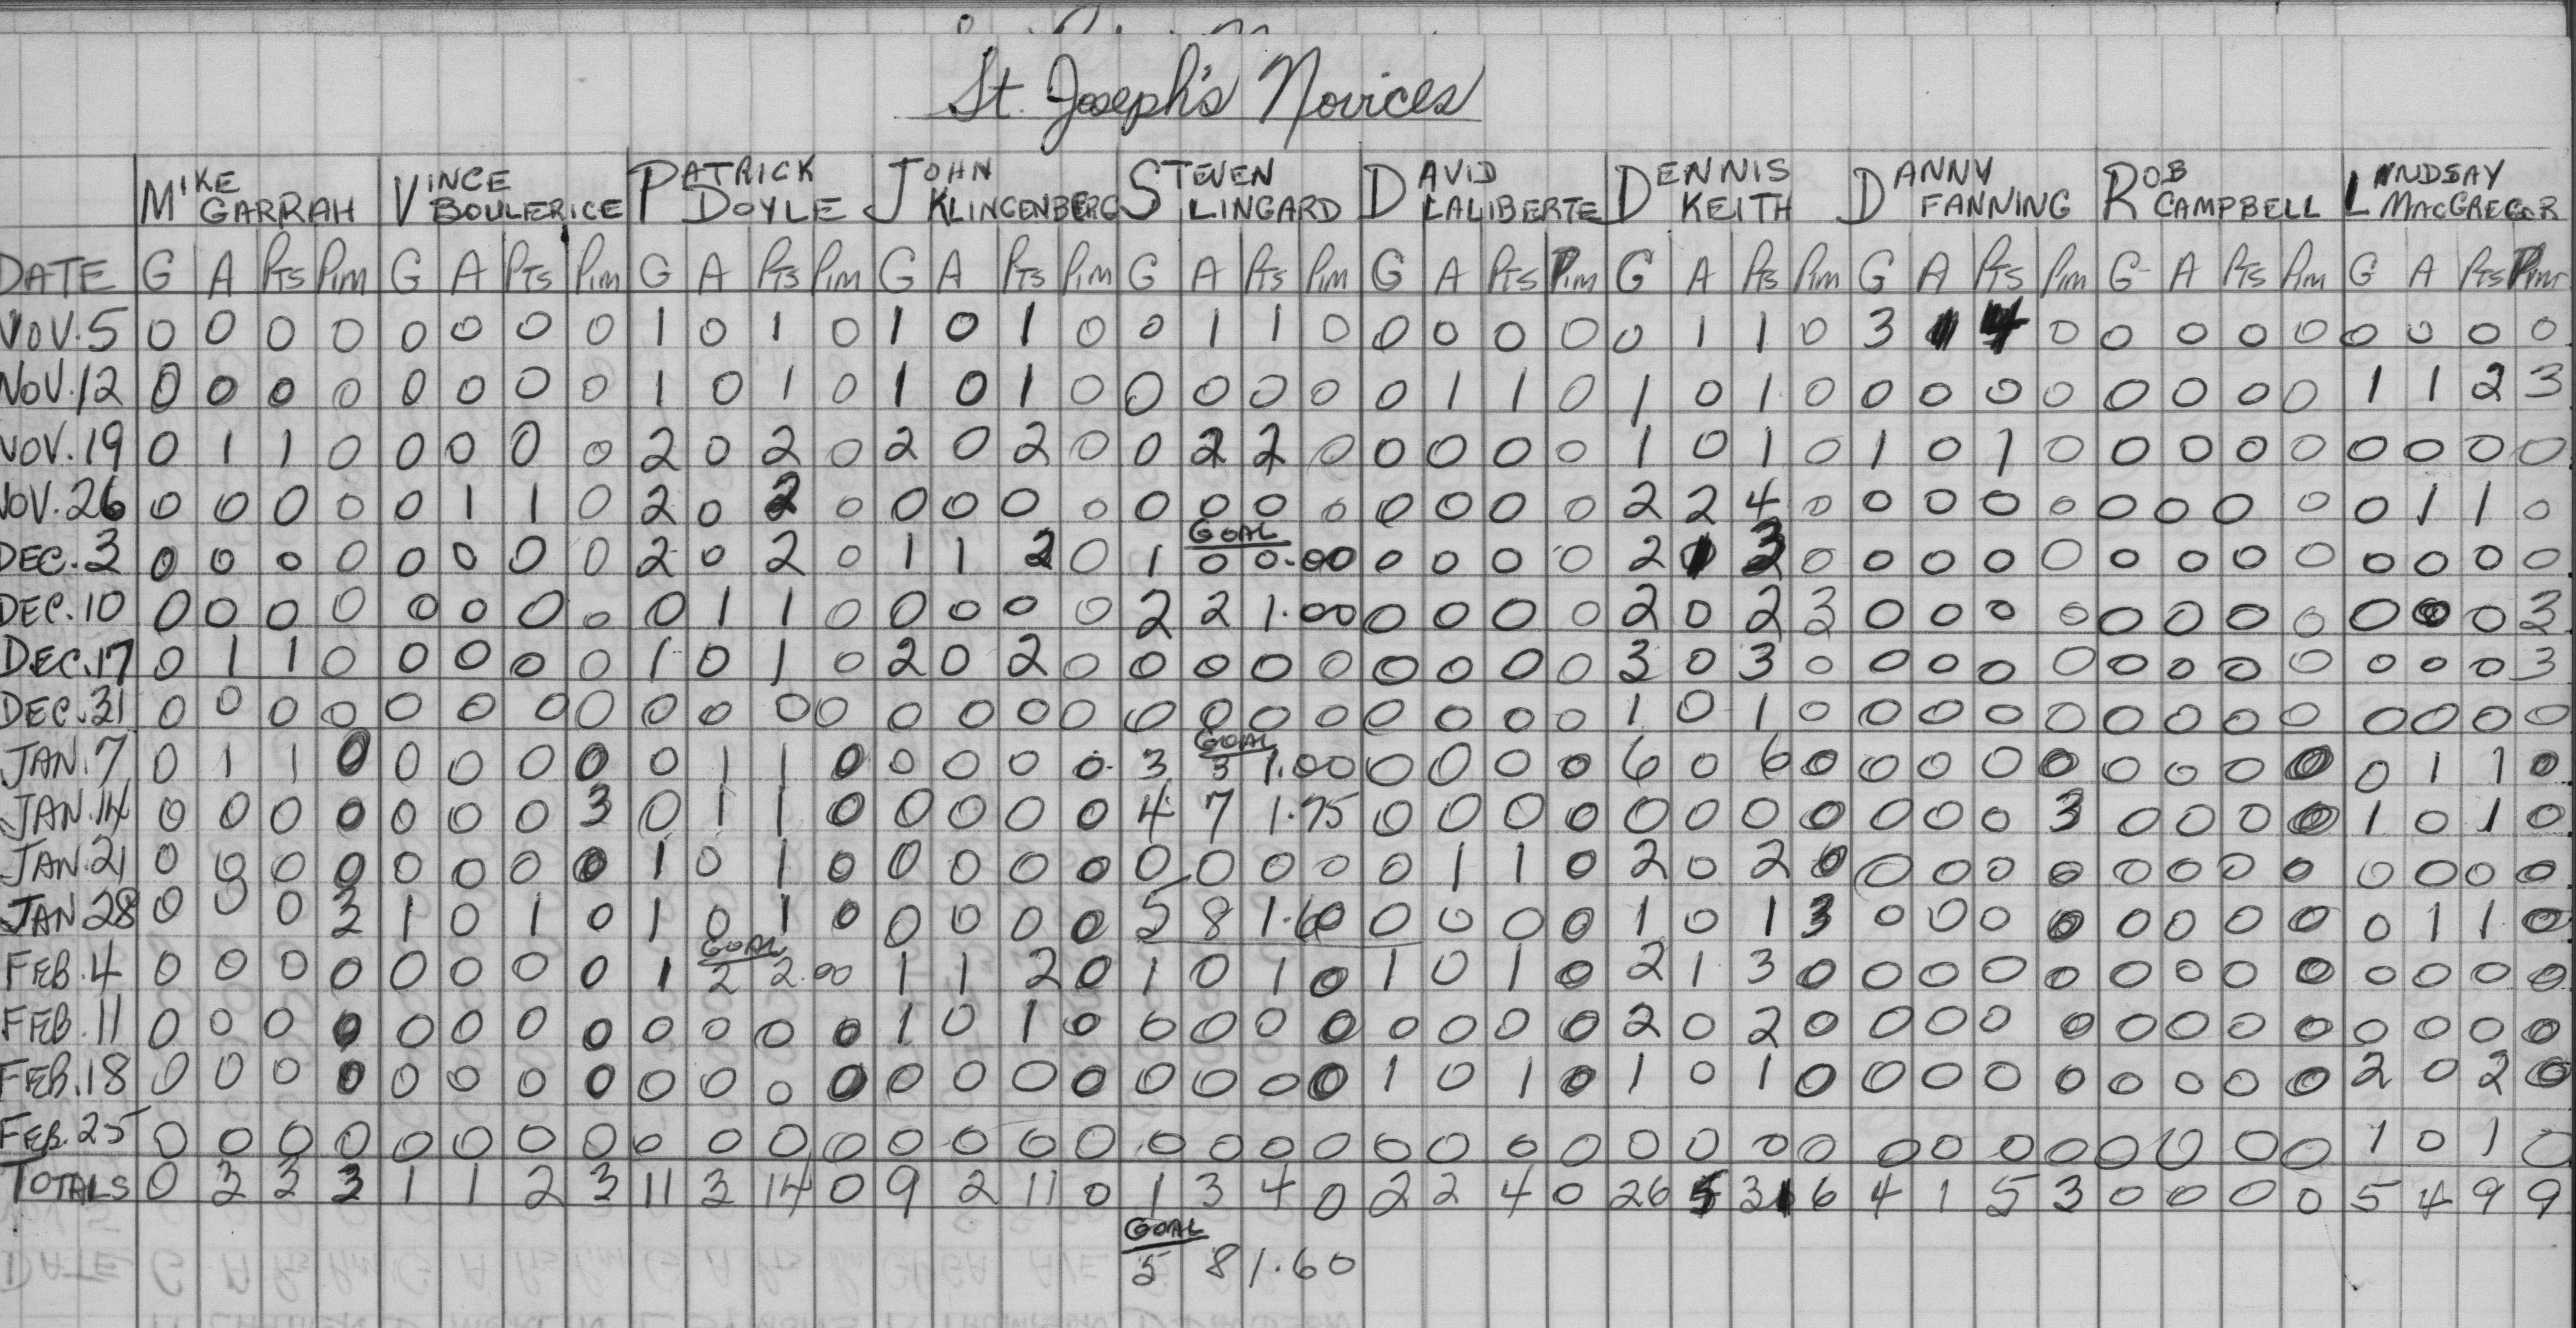 St. Joseph's Novices
MIKE GARRAH VINCE BOULERICE PATRICK DOYLE JOHN KLINGENBERG STEVEN LINGARD DAVID LALIBERTE DENNIS KEITH DANNY FANNING ROB CAMPBELL LINDSAY MACGREGOR
DATE G A PTS PIM G A PTS PIM G A PTS PIM G A PTS PIM G A PTS PIM G A PTS PIM G A PTS PIM G A PTS PIM G A PTS PIM G A PTS PIM
NOV. 5 0 0 0 0 0 0 0 0 1 0 1 0 1 0 1 0 0 1 1 0 0 0 0 0 0 1 1 0 3 1 4 0 0 0 0 0 0 0 0 0
NOV. 12 0 0 0 0 0 0 0 0 1 0 1 0 1 0 1 0 0 0 0 0 0 1 1 0 1 0 1 0 0 0 0 0 0 0 0 0 1 1 2 3
NOV. 19 0 1 1 0 0 0 0 0 2 0 2 0 2 0 2 0 0 2 2 0 0 0 0 0 1 0 1 0 1 0 1 0 0 0 0 0 0 0 0 0
NOV. 26 0 0 0 0 0 1 1 0 2 0 2 0 0 0 0 0 0 0 0 0 0 0 0 0 2 2 4 0 0 0 0 0 0 0 0 0 0 1 1 0
GOAL
DEC. 3 0 0 0 0 0 0 0 0 2 0 2 0 1 1 2 0 1 0 0.00 0 0 0 0 2 1 3 0 0 0 0 0 0 0 0 0 0 0 0 0
DEC. 10 0 0 0 0 0 0 0 0 0 1 1 0 0 0 0 0 2 2 1.00 0 0 0 0 2 0 2 3 0 0 0 0 0 0 0 0 0 0 0 3
DEC. 17 0 1 1 0 0 0 0 0 1 0 1 0 2 0 2 0 0 0 0 0 0 0 0 0 3 0 3 0 0 0 0 0 0 0 0 0 0 0 0 3
DEC. 31 0 0 0 0 0 0 0 0 0 0 0 0 0 0 0 0 0 0 0 0 0 0 0 0 1 0 1 0 0 0 0 0 0 0 0 0 0 0 0 0
GOAL
JAN. 7 0 1 1 0 0 0 0 0 0 1 1 0 0 0 0 0 3 3 1.00 0 0 0 0 6 0 6 0 0 0 0 0 0 0 0 0 0 1 1 0
JAN. 14 0 0 0 0 0 0 0 3 0 1 1 0 0 0 0 0 4 7 1.75 0 0 0 0 0 0 0 0 0 0 0 3 0 0 0 0 1 0 1 0
JAN. 21 0 0 0 0 0 0 0 0 1 0 1 0 0 0 0 0 0 0 0 0 0 1 1 0 2 0 2 0 0 0 0 0 0 0 0 0 0 0 0 0
JAN 28 0 0 0 3 1 0 1 0 1 0 1 0 0 0 0 0 5 8 1.60 0 0 0 0 1 0 1 3 0 0 0 0 0 0 0 0 0 1 1 0
GOAL
FEB. 4 0 0 0 0 0 0 0 0 1 2 2.00 1 1 2 0 1 0 1 0 1 0 1 0 2 1 3 0 0 0 0 0 0 0 0 0 0 0 0 0
FEB. 11 0 0 0 0 0 0 0 0 0 0 0 0 1 0 1 0 0 0 0 0 0 0 0 0 2 0 2 0 0 0 0 0 0 0 0 0 0 0 0 0
FEB. 18 0 0 0 0 0 0 0 0 0 0 0 0 0 0 0 0 0 0 0 0 1 0 1 0 1 0 1 0 0 0 0 0 0 0 0 0 2 0 2 0
FEB. 25 0 0 0 0 0 0 0 0 0 0 0 0 0 0 0 0 0 0 0 0 0 0 0 0 0 0 0 0 0 0 0 0 0 0 0 0 1 0 1 0
TOTALS 0 3 3 3 1 1 2 3 11 3 14 0 9 2 11 0 1 3 4 0 2 2 4 0 26 5 31 6 4 1 5 3 0 0 0 0 5 4 9 9
GOAL
5 8 1.60